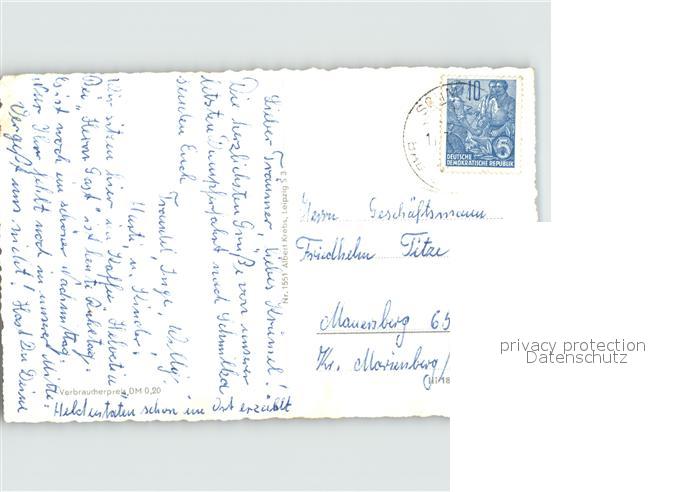 Lieber Trommer, liebes Krümel!
Die herzlichsten Grüße von unserer
letzten Dampferfahrt nach Schmilka
senden Euch
Traudel, Inge, Wally,
u. Kinder!
Wir sitzen hier im Kaffee Helvetia
Der „Herr Gast" ist heute Ruhetag.
Es ist noch ein schöner Nachmittag.
Nur Ihr fehlt noch in unserer Mitte.
Vergeßt uns nicht! Hast Du Deine
Heldentaten schon im Ort erzählt
Verbraucherpreis DM 0,20
Nr. 1551 Albert Krebs, Leipzig
10
5
DEUTSCHE
DEMOKRATISCHE REPUBLIK
Herrn Geschäftsmann
Friedhelm Titze
Mauersberg 65
Kr. Marienberg/
privacy protection
Datenschutz